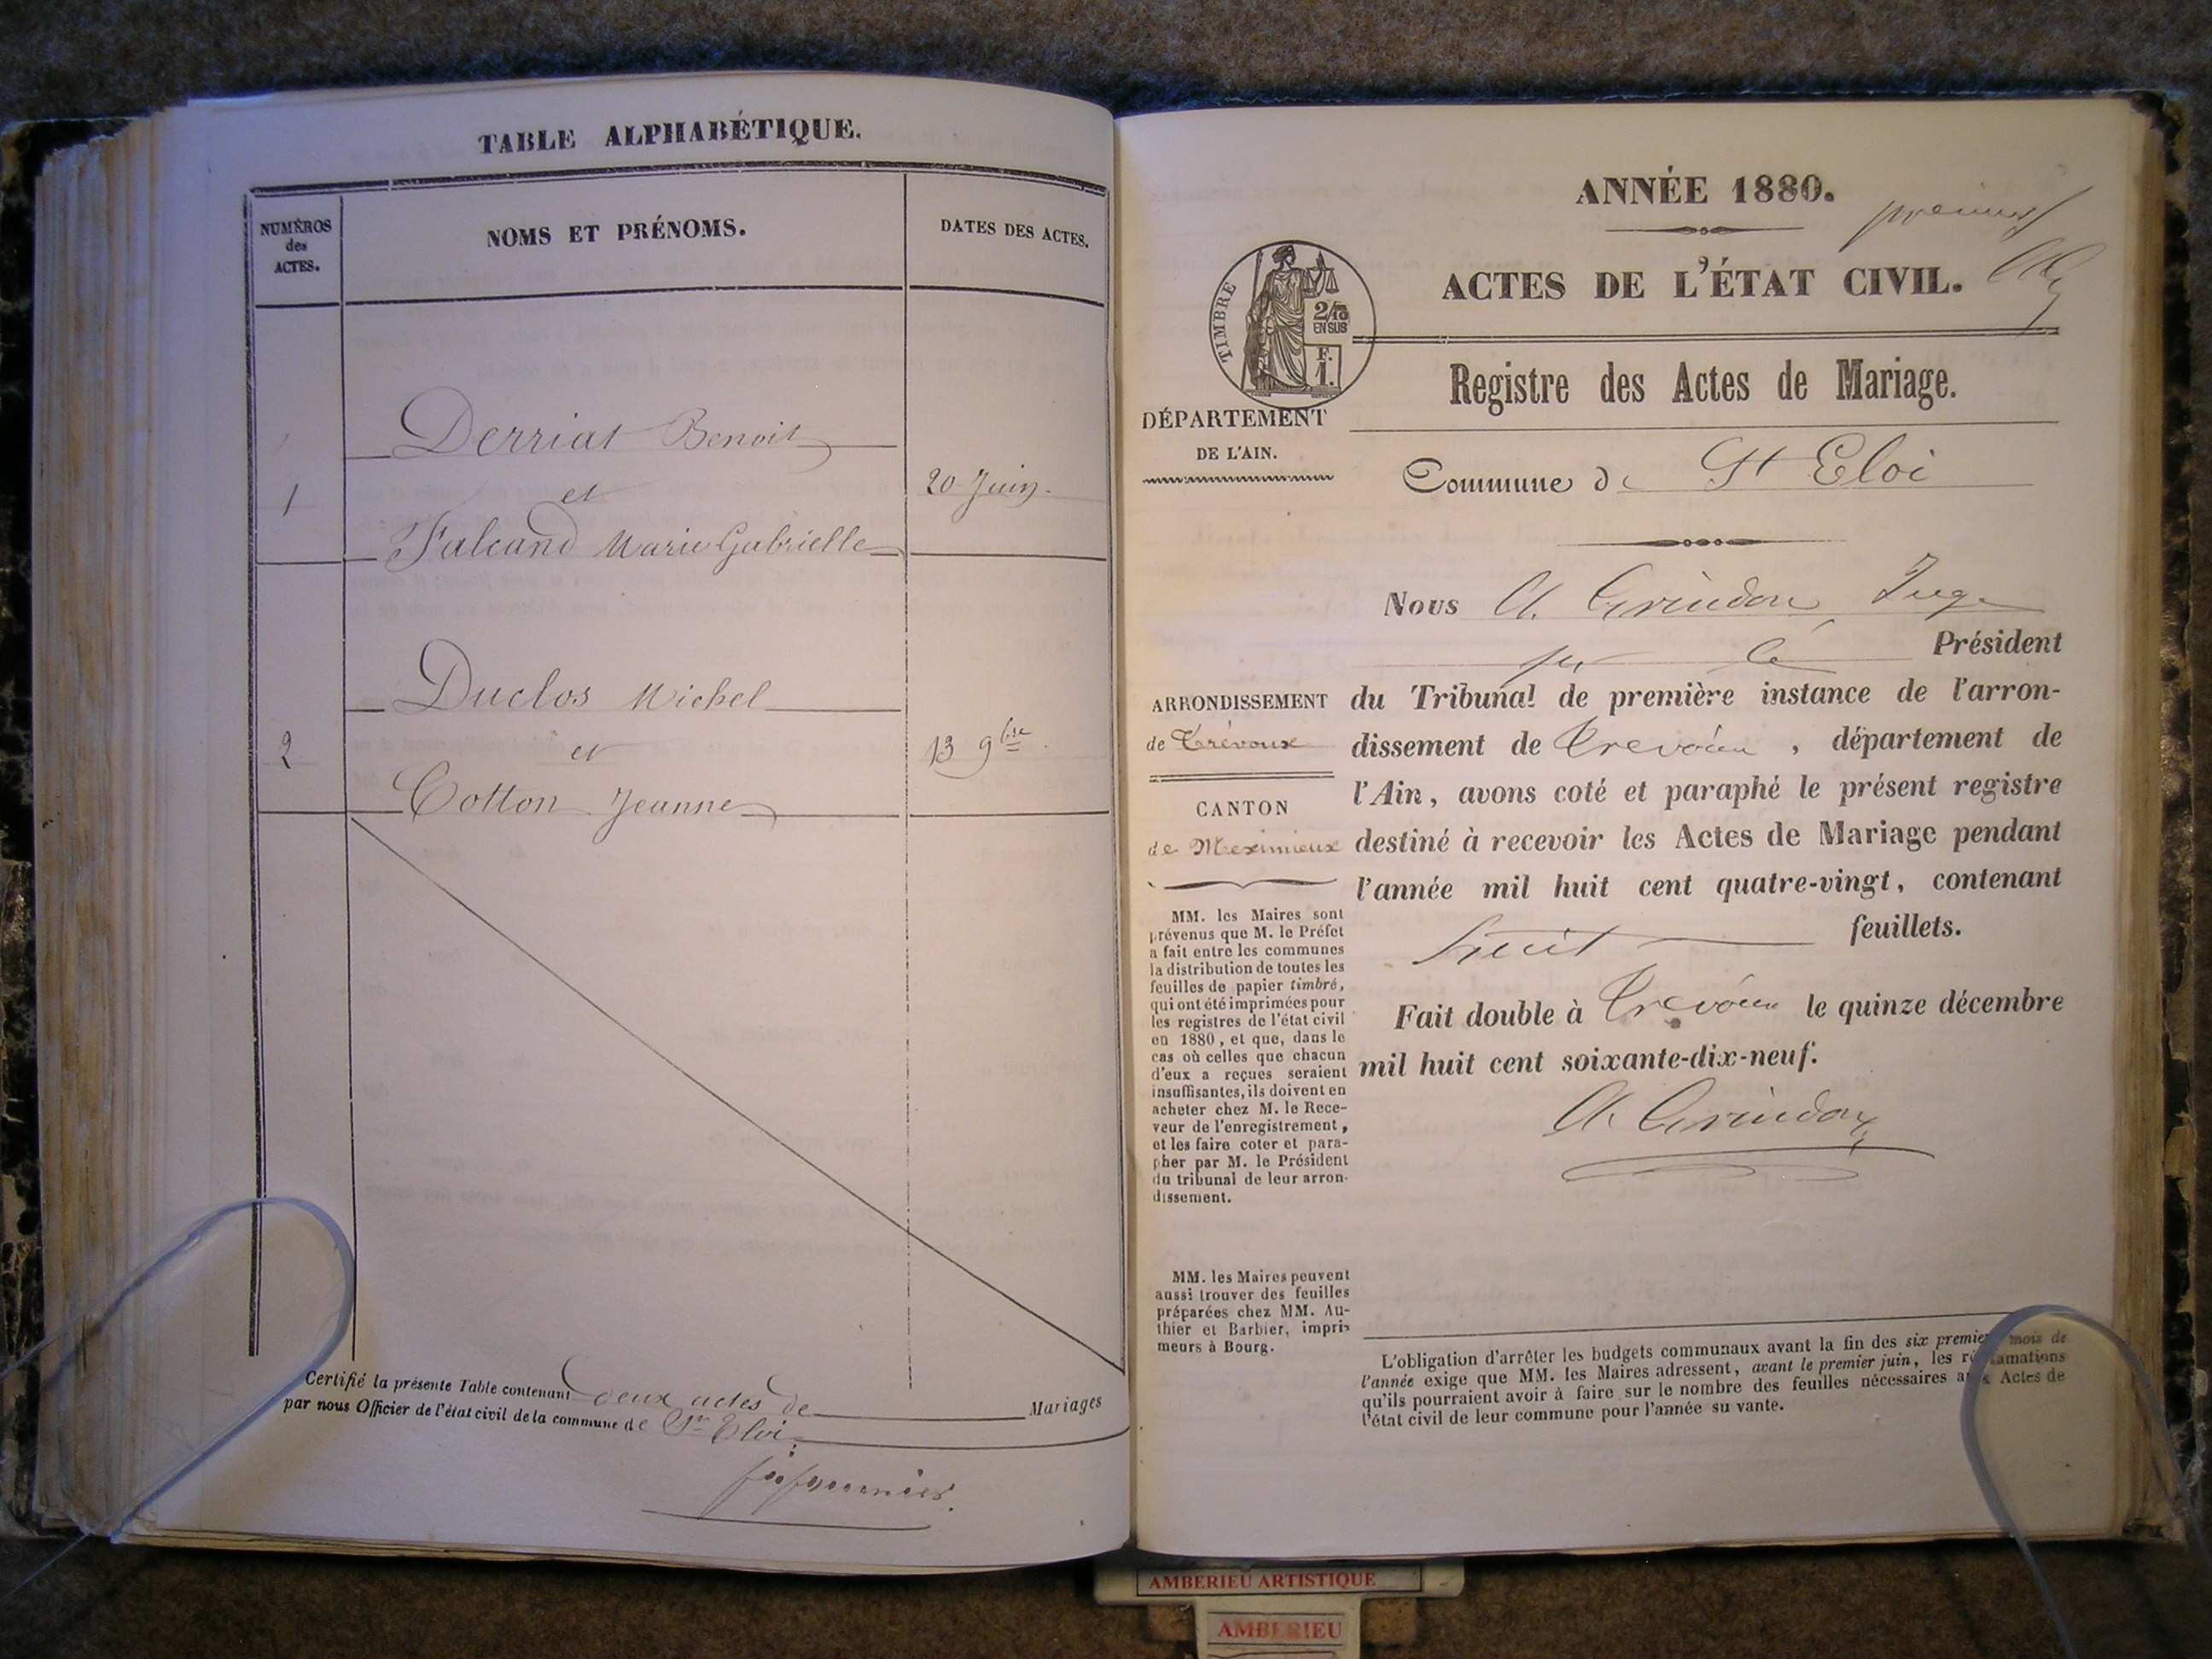 TABLE ALPHABÉTIQUE.
NUMÉROS
des
ACTES.
NOMS ET PRÉNOMS.
DATES DES ACTES.
Derriat Benoit
1
et
20 Juin.
Falcand Marie Gabrielle
Duclos Michel
2
et
13 9bre.
Cotton Jeanne
Certifié la présente Table contenant deux actes de Mariages
par nous Officier de l'état civil de la commune de St Eloi.
ANNÉE 1880.
premier
ACTES DE L'ÉTAT CIVIL.
TIMBRE
2/10
EN SUS
F.
1.
Registre des Actes de Mariage.
DÉPARTEMENT
DE L'AIN.
Commune de St Eloi
Nous A. Grindon Juge
Président
ARRONDISSEMENT
de Trévoux
CANTON
de Meximieux
du Tribunal de première instance de l'arron-
dissement de Trevoux, département de
l'Ain, avons coté et paraphé le présent registre
destiné à recevoir les Actes de Mariage pendant
l'année mil huit cent quatre-vingt, contenant
huit feuillets.
Fait double à Trevoux le quinze décembre
mil huit cent soixante-dix-neuf.
A. Grindon
MM. les Maires sont
prévenus que M. le Préfet
a fait entre les communes
la distribution de toutes les
feuilles de papier timbré,
qui ont été imprimées pour
les registres de l'état civil
en 1880, et que, dans le
cas où celles que chacun
d'eux a reçues seraient
insuffisantes, ils doivent en
acheter chez M. le Rece-
veur de l'enregistrement,
et les faire coter et para-
pher par M. le Président
du tribunal de leur arron-
dissement.
MM. les Maires peuvent
aussi trouver des feuilles
préparées chez MM. Au-
thier et Barbier, impri-
meurs à Bourg.
L'obligation d'arrêter les budgets communaux avant la fin des six premiers mois de
l'année exige que MM. les Maires adressent, avant le premier juin, les réclamations
qu'ils pourraient avoir à faire sur le nombre des feuilles nécessaires aux Actes de
l'état civil de leur commune pour l'année su vante.
AMBERIEU ARTISTIQUE
AMBERIEU